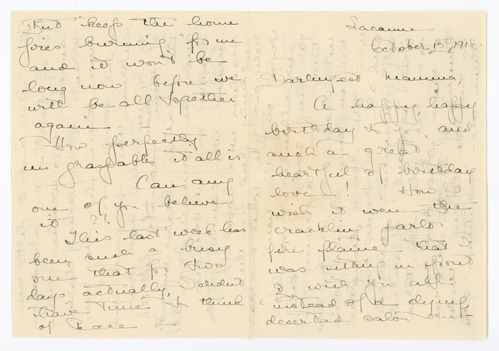 And "keep the home
fires burning" for me
and it won't be
long now before we
will be all together
again
How perfectly
un-graspable it all is
Can any
one of you believe
it ?!
This last week has
been such a busy
one that for two
days actually, I didn't
have time to think
of Peace
Lacanau
October 13, 1918
Darlingest Mamma,
A happy, happy
birthday to you, and
such a great
heartful of birthday
love! How I
wish it were the
crackling parlor
fire flame that I
was sitting in front
of with you all
instead of a dying,
deserted salon